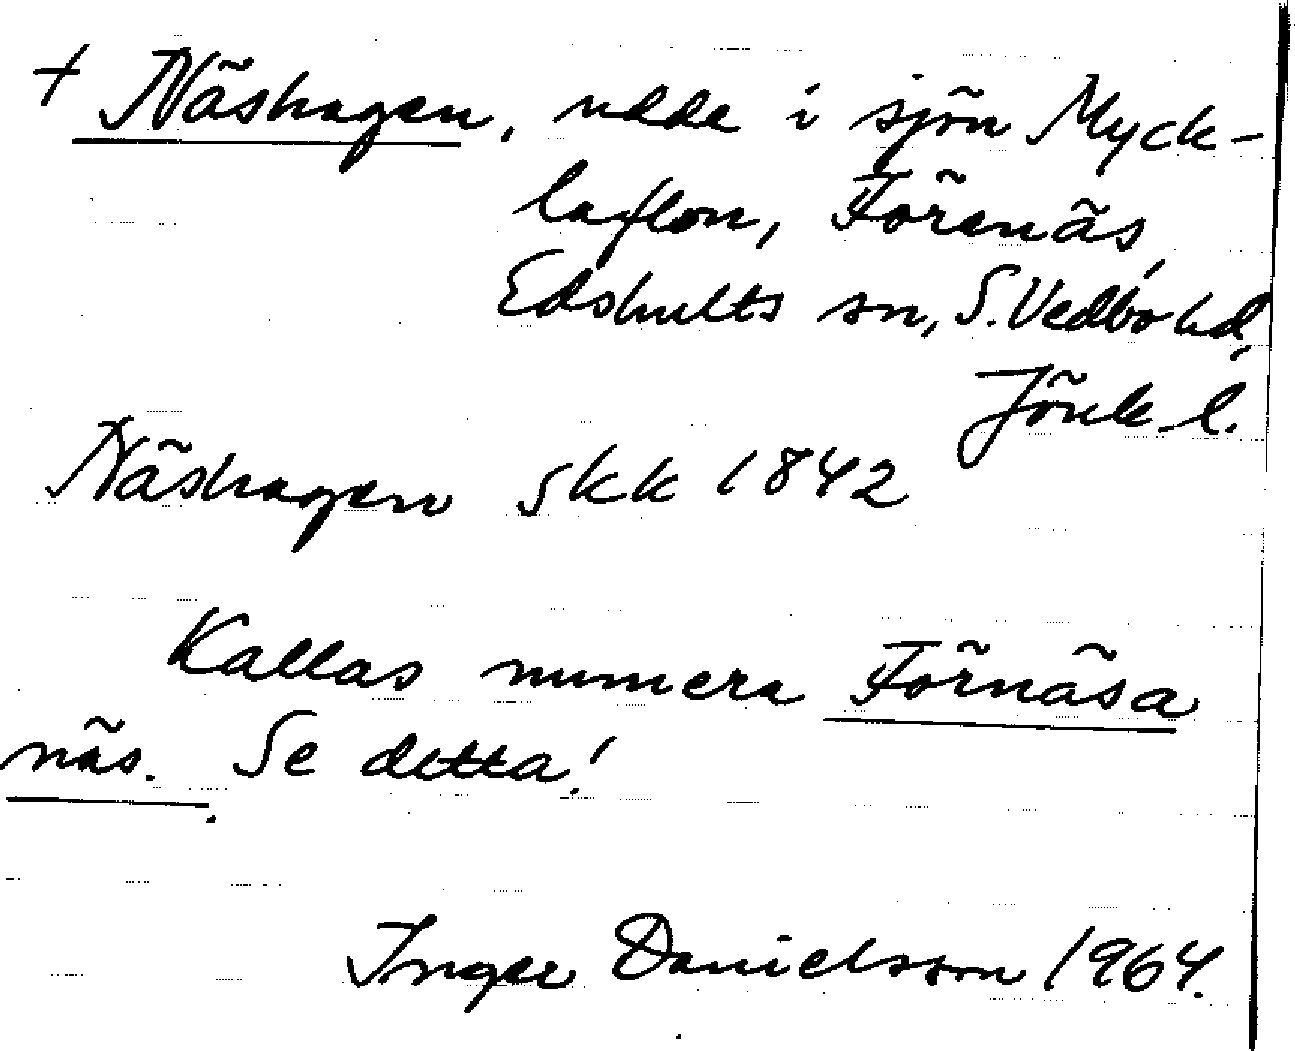 + Näshagen, udde i sjön Myck-
laflon, Förenäs,
Edshults sn, S. Vedbo hd,
Jönk. l.
Näshagen skk 1842
Kallas numera Förnäsa
näs. Se detta!
Inger Danielsson 1964.